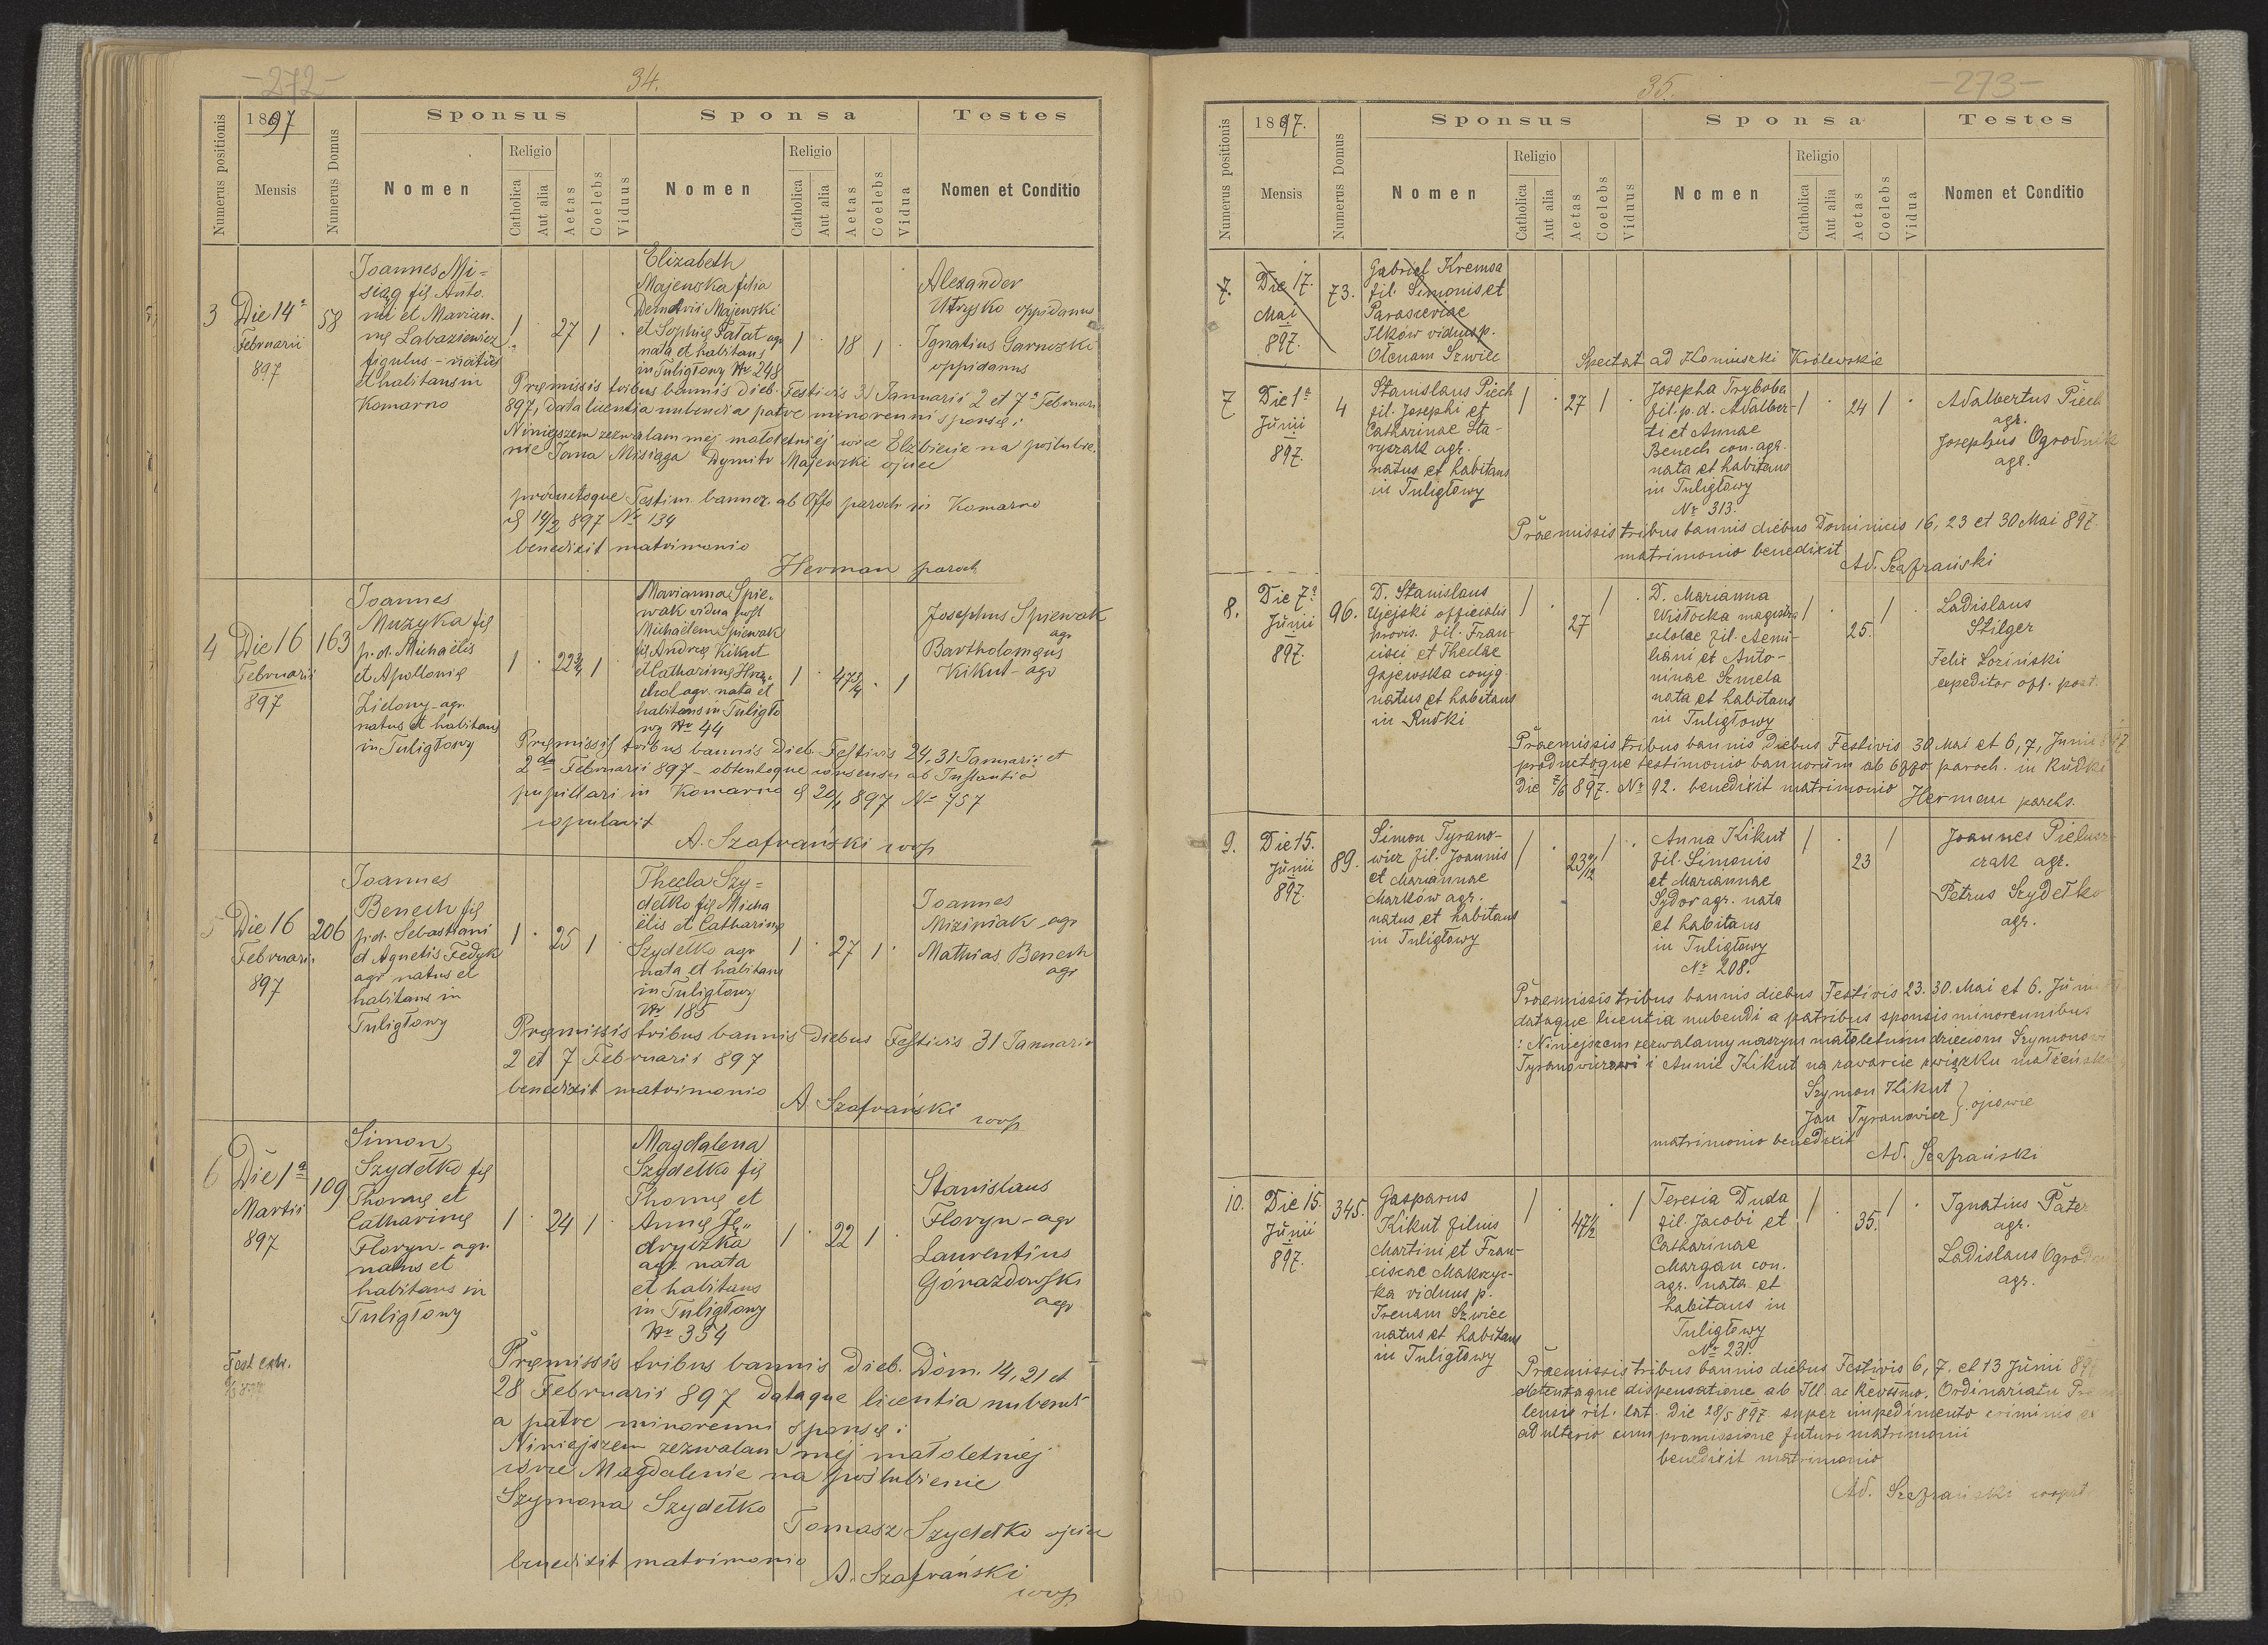 -272-
34.
Numerus positionis
1897
Mensis
Numerus Domus
Sponsus
Sponsa
Testes
Nomen
Religio
Catholica
Aut alia
Aetas
Coelebs
Viduus
Nomen
Religio
Catholica
Aut alia
Aetas
Coelebs
Vidua
Nomen et Conditio
3
Die 14ª
Februarii
897
58
Joannes Mi=
siąg fil Anto.
nii et Marian.
nę Labaziewicz
figulus - natus
et habitans in
Komarno
1 · 27 1 ·
Elizabeth
Majewska filia
Demetrii Majewski
et Sophię Fałat agr
nata et habitans
in Tuligłowy Nr 248
1 18 1 ·
Alexander
Utrysko oppidanus
Ignatius Garwski
oppidanus
Premissis tribus bannis dieb. Festivis 31 Januarii 2 et 7ª Februari
897, data licentia nubendi a patre minorenni sponsę:
Niniejszem zezwalam mej małoletniej córce Elżbiecie na poślubie.
nie Jana Misiąga Dymitr Majewski ojciec
productoque Testim. bannor. ab Offo paroch in Komarno
d 14/2 897 Nr 134
benedixit matrimonio
Herman paroch
4
Die 16
Februarii
897
163
Joannes
Muzyka fil
p.d. Michaëlis
et Apollonię
Zielony - agr.
natus et habitans
in Tuligłowy
1 · 22¾ 1
Marianna Śpie.
wak vidua post
Michaëlem Śpiewak
fil Andreę Kikut
et Catharinę Hre.
chol agr. nata et
habitans in Tuligło
wy Nr 44
1 · 47¾ · 1
Josephus Śpiewak
agr
Bartholomęus
Kikut - agr
Premissis tribus bannis Dieb. Festivis 24, 31 Januarii et
2da Februarii 897 - obtentoque consensu ab Instantia
pupillari in Komarno d 20/1 897 No 757
copulavit
A. Szafrański coop
5
Die 16
Februari.
897
206
Joannes
Benech fil
p.d. Sebastiani
et Agnetis Fedyk
agr natus et
habitans in
Tuligłowy
1 · 25 1 ·
Thecla Szy=
dełko fil Micha
ëlis et Catharinę
Szydełko agr
nata et habitans
in Tuligłowy
Nr 185
1 · 27 1 ·
Joannes
Miziniak agr
Mathias Benech
agr
Premissis tribus bannis Diebus Festivis 31 Januarii
2 et 7 Februarii 897
benedixit matrimonio
A Szafrański
coop
6
Die 1ª
Martii
897
109
Simon
Szydełko fil
Thomę et
Catharinę
Floryn - agr.
natus et
habitans in
Tuligłowy
1 · 24 1 ·
Magdalena
Szydełko fil
Thomę et
Annę Ję„
dryczka
agr. nata
et habitans
in Tuligłowy
Nr 354
1 · 22 1 ·
Stanislaus
Floryn - agr
Laurentius
Gorazdowski
agr
Test extr.
Premissis tribus bannis Dieb. Dom. 14, 21 et
28 Februarii 897 dataque licentia nubendi
a patre minorenni sponsę:
Niniejszem zezwalam mej małoletniej
córce Magdalenie na poślubienie
Szymona Szydełko
Tomasz Szydełko ojciec
benedixit matrimonio
A. Szafrański
coop
35.
-273-
Numerus positionis
1897.
Mensis
Numerus Domus
Sponsus
Sponsa
Testes
Nomen
Religio
Catholica
Aut alia
Aetas
Coelebs
Viduus
Nomen
Religio
Catholica
Aut alia
Aetas
Coelebs
Vidua
Nomen et Conditio
7.
Die 17.
Mai
897.
73.
Gabriel Kremsa
fil. Simonis et
Parasceviae
Ilków viduus p.
Ołenam Szwiec
Spectat ad Koniuszki Królewskie
7
Die 1ª
Júnii
897.
4
Stanislaus Piech
fil. Josephi et
Catharinae Sta-
ryszak agr.
natus et habitans
in Tuligłowy
1 · 27 1 ·
Josepha Tryboba
fil. p.d. Adalber-
ti et Annae
Benech con. agr.
nata et habitans
in Tuligłowy
Nr 313.
1 · 24 1 ·
Adalbertus Piech
agr.
Josephus Ogrodnik
agr.
Praemissis tribus bannis diebus Dominicis 16, 23 et 30 Mai 897.
matrimonio benedixit
Ad. Szafrański
8.
Die 7ª
Júnii
897.
96.
D. Stanislaus
Ujejski officialis
provis. fil. Fran-
cisci et Theclae
Gajewska conjg.
natus et habitans
in Rudki
1 · 27 1 ·
D. Marianna
Wisłocka magistra
scholae fil. Aemi-
liani et Anto-
ninae Szmela
nata et habitans
in Tuligłowy
1 · 25. 1 ·
Ladislaus
Stilger
Felix Łoziński
expeditor off. post.
Praemissis tribus bannis Diebus Festivis 30 Mai et 6, 7, Junii 897
productoque testimonio bannorum ab Offo paroch. in Rudki
Die 7/6 897. Nr 92. benedixit matrimonio
Herman parchs.
9.
Die 15.
Júnii
897.
89.
Simon Tyrano-
wicz fil. Joannis
et Mariannae
Marków agr.
natus et habitans
in Tuligłowy
1 · 1 ·
Anna Kikut
fil. Simonis
et Mariannae
Sydor agr. nata
et habitans
in Tuligłowy
Nr 208.
1 · 23 1
Joannes Pielusz-
czak agr.
Petrus Szydełko
agr.
Praemissis tribus bannis diebus Festivis 23. 30. Mai et 6. Júni
dataque licentia nubendi a patribus sponsis minorennibus
: Niniejszem zezwalamy naszym małoletnim dzieciom Szymonowi
Tyranowiczowi i Annie Kikut na zawarcie związku małżeńskie
Szymon Kikut
Jan Tyranowicz } ojcowie
matrimonio benedixit
Ad. Szafrański
10.
Die 15.
Júnii
897.
345.
Gasparus
Kikut filius
Martini et Fran-
ciscae Makrzyc-
ka viduus p.
Irenam Szwiec
natus et habitans
in Tuligłowy
1 · 47½ · 1
Teresia Duda
fil. Jacobi et
Catharinae
Margan con.
agr. nata et
habitans in
Tuligłowy
Nr 231.
1 · 35. 1 ·
Ignatius Pater
agr.
Ladislaus Ogrod
agr.
Praemissis tribus bannis diebus Festivis 6, 7, et 13 Júnii 897
obtentaque dispensatione ab Ill. ac Revssmo. Ordinariatu Prem
lensis rit. lat. Die 28/5 897 super impedimento criminis ex
adulterio cum promissione futuri matrimonii
benedixit matrimonio
Ad. Szafrański coopt.